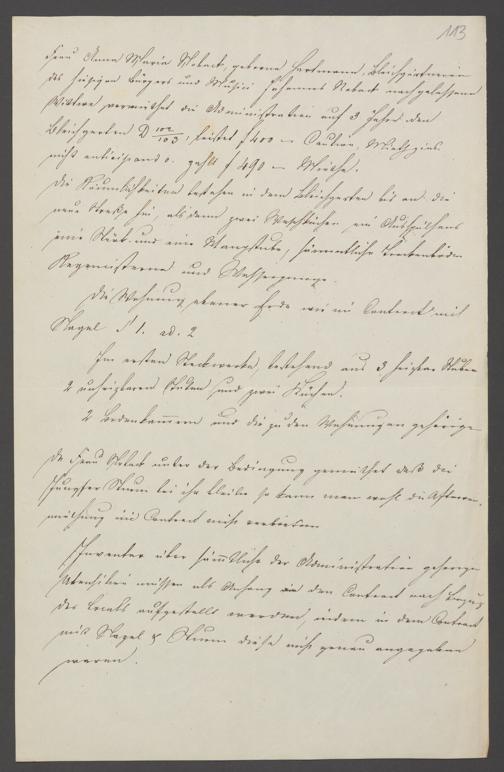 113
Frau Anna Maria Noback, geborne Hartmann, Bleichgärtnerin
des hiesigen Bürgers und Musici Johannes Noback nachgelassene
Wittwe vermiethet die Administration auf 3 Jahre den
Bleichgarten D 102/103, leistet f 400 — Caution, Miethzins
nicht anticipando. zahlt f 490 — Miethe.
Die Räumlichkeiten bestehen in dem Bleichgarten bis an die
neue Straße hin, alsdann zwei Waschküchen, ein
eine Stub und eine Mangstube, sämmtliche Trockenböden
Regencisterne und Wasserpumpe.
Die Wohnung ebener Erde wie im Contract mit
Nagel § 1. ad. 2
Im ersten Stockwerke, bestehend aus 3 heizbare Stuben
2 unheizbaren Stuben und zwei Küchen.
2 Bodenkammern und die zu den Wohnungen gehörige
Da Frau Noback unter der Bedingung gemiethet daß die
Jungfer Sturm bei ihr bleibe so kann man wohl die Afterver-
miethung im Contract nicht verbieten
Inventar über sämtliche der Administration gehörige
Utensilien müssen als Anhang in den Contract nach Bezug
des Locals aufgestellt werden, indem in dem Contract
mit Nagel & Sturm diese nicht genau angegeben
waren.